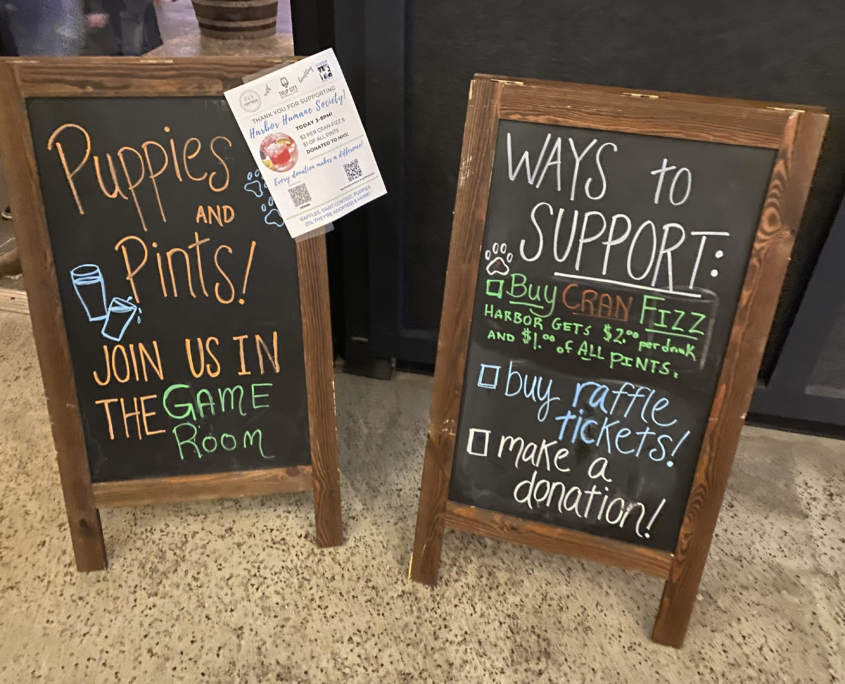 Puppies
AND
Pints!
JOIN US IN
THE GAME
ROOM
THANK YOU FOR SUPPORTING
Harbor Humane Society!
TODAY 3-8PM!
$2 PER CRAN FIZZ &
$1 OF ALL PINTS
DONATED TO HHS!
Every donation makes a difference!
WAYS to
SUPPORT:
Buy CRAN FIZZ
HARBOR GETS $2.00 per drink
AND $1.00 of ALL PINTS.
buy raffle
tickets!
make a
donation!